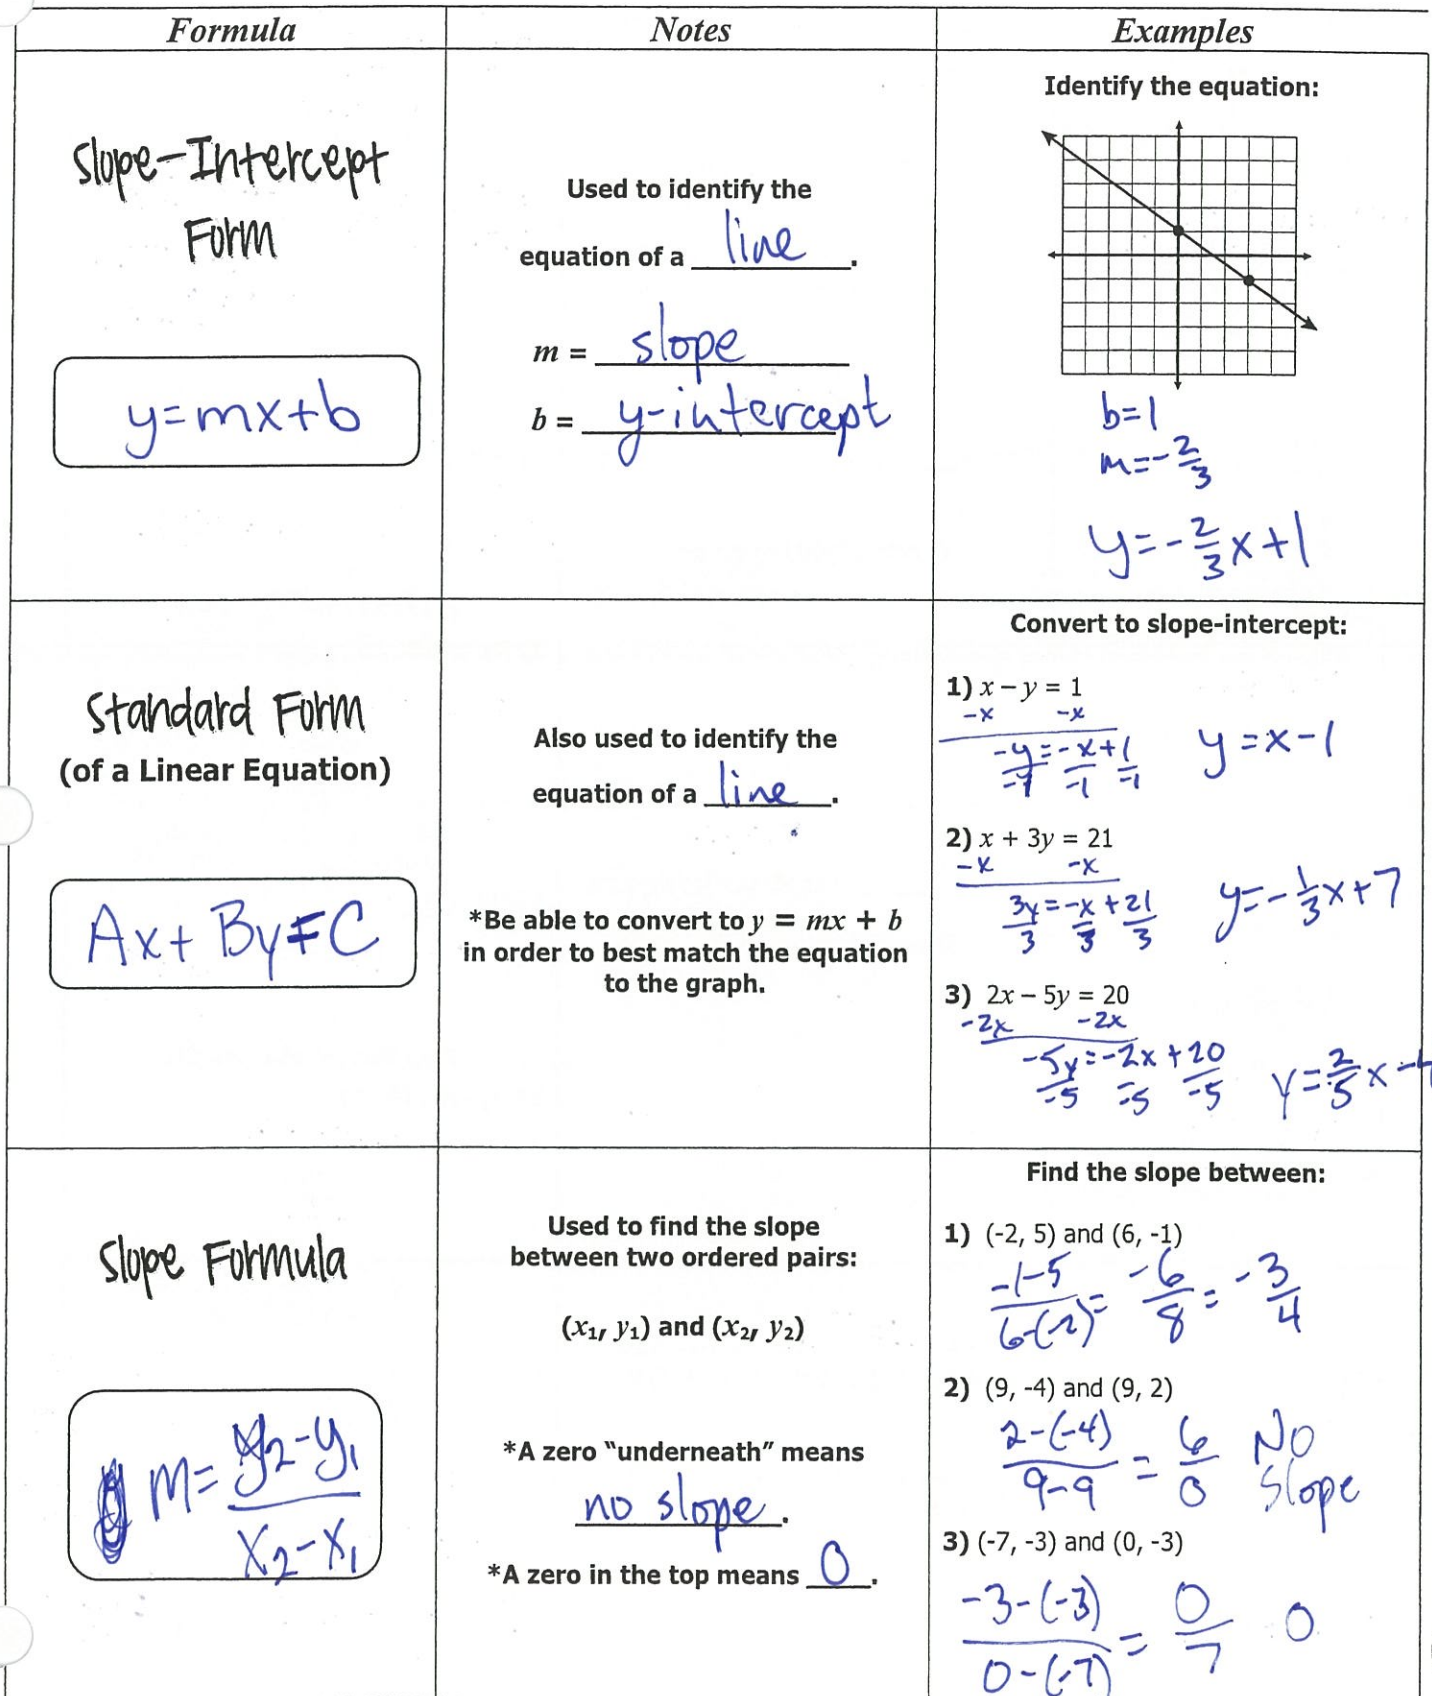 Formula Notes Examples
Slope-Intercept
Form
y=mx+b
Used to identify the
equation of a line.
m = slope
b = y-intercept
Identify the equation:
b=1
m=-2/3
y=-2/3x+1
Standard Form
(of a Linear Equation)
Ax+By=C
Also used to identify the
equation of a line.
*Be able to convert to y = mx + b
in order to best match the equation
to the graph.
Convert to slope-intercept:
1) x – y = 1
-x -x
-y=-x+1 y=x-1
-1 -1 -1
2) x + 3y = 21
-x -x
3y=-x+21 y=-1/3x+7
3 3 3
3) 2x – 5y = 20
-2x -2x
-5y=-2x+20 y=2/5x-4
-5 -5 -5
Slope Formula
m= y₂-y₁
x₂-x₁
Used to find the slope
between two ordered pairs:
(x₁, y₁) and (x₂, y₂)
*A zero “underneath” means
no slope.
*A zero in the top means 0.
Find the slope between:
1) (-2, 5) and (6, -1)
-1-5 = -6 = -3
6-(-2) 8 4
2) (9, -4) and (9, 2)
2-(-4) = 6 No
9-9 0 Slope
3) (-7, -3) and (0, -3)
-3-(-3) = 0 0
0-(-7) 7